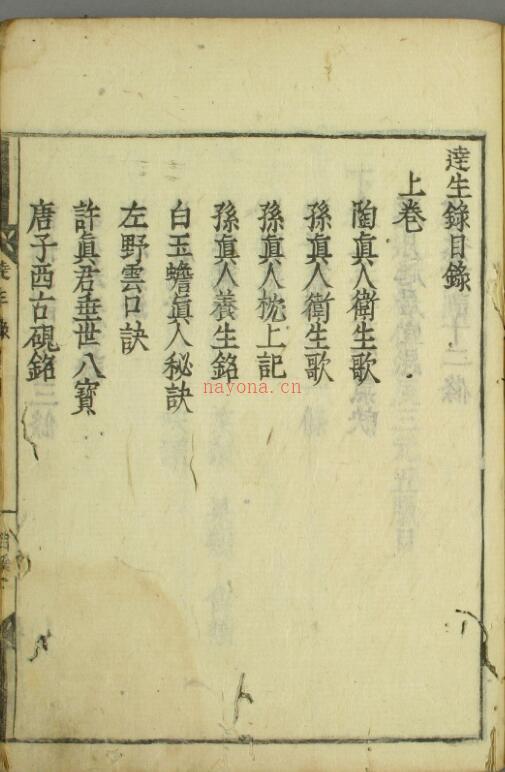 達生錄目錄
上卷
陶眞人衛生歌
孫眞人衛生歌
孫眞人枕上記
孫眞人養生銘
白玉蟾眞人秘訣
左野雲口訣
許眞君垂世八寶
唐子西古硯銘
達生錄
nayona.cn